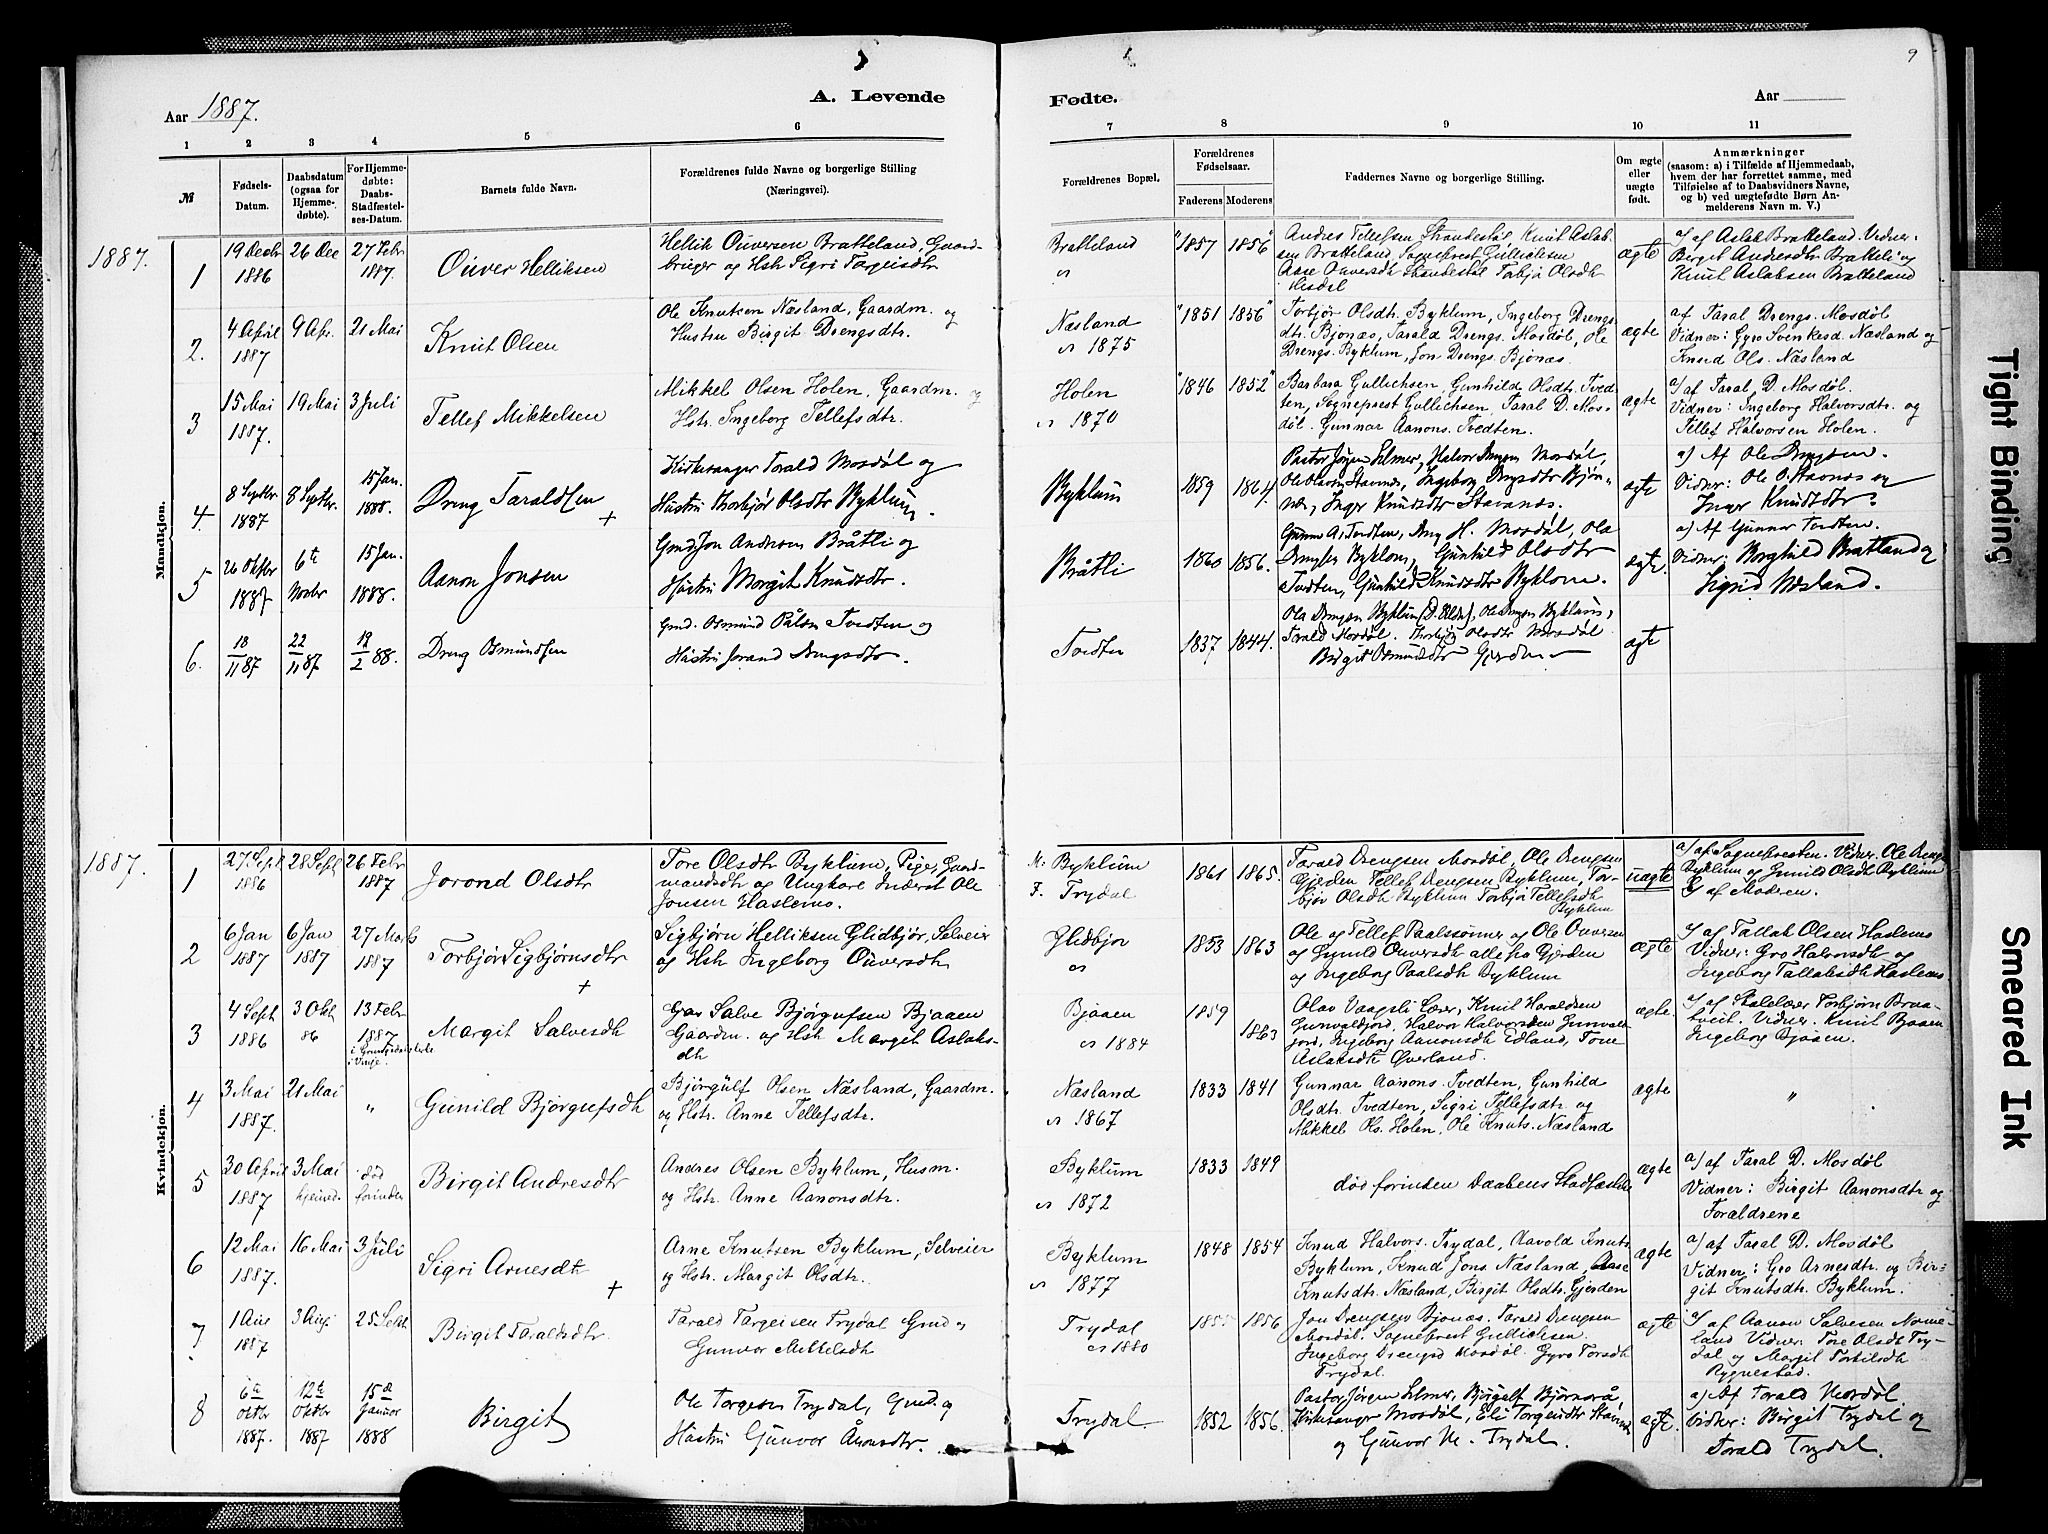 9
Aar 1887.
A. Levende
Fødte.
Aar
1 2 3 4 5 6 7 8 9 10 11
№
Fødsels-
Datum.
Daabsdatum
(ogsaa for
Hjemme-
døbte).
For Hjemme-
døbte:
Daabs-
Stadfæstel-
ses-Datum.
Barnets fulde Navn.
Forældrenes fulde Navne og borgerlige Stilling
(Næringsvei).
Forældrenes Bopæl.
Forældrenes
Fødselsaar.
Faderens Moderens
Faddernes Navne og borgerlige Stilling.
Om ægte
eller
uægte
født.
Anmærkninger
(saasom: a) i Tilfælde af Hjemmedaab,
hvem der har forrettet samme, med
Tilføielse af to Daabsvidners Navne,
og b) ved uægtefødte Børn An-
melderens Navn m. V.)
Mandkjøn.
1887.
1
19 Decbr
1886
26 Dec
27 Febr.
1887.
Ouver Helliksen
Hellik Ouversen Bratteland, Gaard-
bruger og Hstr Sigri Targeisdtr
Bratteland
"1857 1856"
Andres Tellefsen Strandestøl Knut Aslak-
sen Bratteland, Sogneprest Gullichsen
Aase Ouversdtr Strandestøl Torbjør Olsdtr
Hisdal
ægte
a/ af Aslak Bratteland. Vidner:
Bergit Andersdtr Bratteli og
Knut Aslaksen Bratteland
2.
4 April
1887
9 Apr.
21 Mai
Knut Olsen
Ole Knutsen Næsland, Gaardm. og
Hustru Birgit Drengsdtr.
Næsland
1875
"1851 1856"
Torbjør Olsdtr. Byklum, Ingeborg Drengs-
dtr. Bjønæs, Tarald Drengs. Mosdøl, Ole
Drengs. Byklum, Jon Drengs. Bjønæs.
ægte
af Taral Drengs. Mosdøl
Vidner: Gyro Svenkesd. Næsland og
Knud Ols. Næsland
3
15 Mai
1887.
19 Mai
3 Juli
Tellef Mikkelsen
Mikkel Olsen Holen, Gaardm. og
Hstr. Ingeborg Tellefsdtr.
Holen
1870
"1846 1852"
Barbara Gullichsen, Gunhild Olsdtr. Tved-
ten, Sogneprest Gullichsen, Taral D. Mos-
døl. Gunnar Aanons. Tvedten.
ægte
a/ af Taral, D. Mosdøl.
Vidner: Ingeborg Halvorsdtr. og
Tellef Halvorsen Holen.
4.
8 Septbr.
1887
8 Septbr.
15 Jan.
1888.
Dreng Taraldsen
+
Kirkesanger Torald Mosdøl og
Hustru Thorbjør Olsdtr Byklum.
Byklum
1859 1864.
Pastor Jørgen Selmer, Halvor Drengsen Mosdøl,
Ole Olsen Stavnes, Ingeborg Drengsdtr Bjøn-
nes, Inger Knudsdtr Stavanes.
ægte
a) Af Ole Drengsen.
Vidner: Ole O. Stavnes og
Inger Knudsdtr
5
26 Oktbr
1887
6te
Novbr
15 Jan.
1888.
Aanon Jonsen
Gmd Jon Andresen Bråtli og
Hustru Margit Knudsdtr.
Bråtli
1860 1856.
Gunnar A. Tvedten, Dreng H. Mosdøl, Ola
Drengsen Byklom, Gunhild Olsdtr
Tvedten, Gunhild Knudsdtr Byklom.
ægte.
a) Af Gunnar Tvedten.
Vidner: Borghild Bratland og
Sigrid Næsland.
6.
18
11 87
22
11 87
19
2 88.
Dreng Osmundsen
Gmd. Osmund Pålsen Tvedten og
Hustru Jorand Drengsdtr.
Tvedten
1837 1844.
Ola Drengsen Byklum (d. Eldre), Ole Drengsen Byklum,
Torald Mosdøl. Thorbjørg Olsdtr Mosdøl.
Birgit Osmundsdtr Gjerden
ægte
Kvindekjøn.
1887.
1
27 Sept
1886
28 Sept
26 Febr
1887
Jorond Olsdtr
Tore Olsdtr Byklum, Pige, Gaard-
mandsdtr og Ungkare Inderst Ole
Jonsen Haslemo.
M: Byklum
F. Trydal
1861 1865.
Tarald Drengsen Mosdøl, Ole Drengsen
Gjerden Tellef Drengsen Byklum, Tor-
bjør Olsdtr Byklum Torbjør Tellefsdtr
Byklum
uægte
a/ af Sognepresten. Vidner. Ole Drengs.
Byklum og Gunild Olsdtr Byklum
b/ af Modren.
2
6 Jan
1887
6 Jan
1887
27 Marts
1887
Torbjør Sigbjørnsdtr
+
Sigbjørn Helliksen Glidbjør, Selveier
og Hstr Ingeborg Ouversdtr
Glidbjor
1853 1863
Ole og Tellef Paalssønner og Ole Ouversen
og Gunild Ouversdtr alle fra Gjerden
og Ingeborg Paalsdtr Byklum
ægte
a/ af Tallak Olsen Haslemo
Vidner: Gro Halvorsdtr og
Ingeborg Tallaksdtr Haslemo
3
4 Sept
1886
3 Okt
86
13 Febr
1887
i Grungedalskirke
i Vinje.
Margit Salvesdtr
Gav Salve Bjørgufsen Bjaaen
Gaardm. og Hstr Margit Aslaks-
dtr
Bjaaen
1884
1859 1863
Olav Vaagsli Lærer, Knut Haraldsen
Gunvaldjord, Halvor Halvorsen Gunvald-
jord, Ingeborg Aanonsdtr Edland, Tone
Aslaksdtr Øverland.
ægte.
a/ af Skolelærer Torbjørn Braa-
tveit. Vidner. Knut Bjaaen
Ingeborg Bjaaen.
4
3 Mai
1887.
21 Mai
"
Gunild Bjørgufsdtr
Bjørgulf Olsen Næsland, Gaardm.
og Hstr. Anne Tellefsdtr.
Næsland
1867
1833 1841
Gunnar Aanons. Tvedten, Gunhild
Olsdtr. Tvedten, Sigri Tellefsdtr. og
Mikkel Ols. Holen, Ole Knuts. Næsland
ægte
"
5
30 April
1887
3 Mai
hjemmed.
død
forinden
Birgit Andresdtr
Andres Olsen Byklum, Husm.
og Hstr. Anne Aanonsdtr.
Byklum
1872
1833 1849
død forinden Daabens Stadfæstelse
ægte
a/ af Taral D. Mosdøl
Vidner: Birgit Aanonsdtr og
Forældrene
6
12 Mai
1887.
16 Mai
3 Juli
Sigri Arnesdtr
+
Arne Knutsen Byklum, Selveier
og Hstr. Margit Olsdtr.
Byklum
1877
1848 1854
Knud Halvors. Trydal, Aavold Knuts.
Byklum, Knud Jons. Næsland, Aase
Knutsdtr. Næsland, Birgit Olsdtr. Gjerden
ægte
a/ af Taral D. Mosdøl
Vidner: Gro Arnesdtr. og Bir-
git Knutsdtr. Byklum.
7
1 Aug
1887
3 Augs
25 Sept
Birgit Taraldsdtr
Tarald Targeisen Trydal Gmd og
Gunvor Mikkelsdtr
Trydal
1880
1855 1856
Jon Drengsen Bjones. Tarald Drengsen
Mosdøl. Sogneprest Gullichsen.
Ingeborg Drengsd Mosdøl. Gyro Torsdtr
Trydal.
ægte
a/ af Aanon Salvesen Nome-
land Vidner: Tore Olsdtr Try-
dal og Margit Torkilsdtr
Rygnestad.
8
6te
Oktbr
1887.
12te
Oktbr
1887
15de
Januar
1888
Birgit
Ole Torgesen Trydal, Gmd. og
Hustru Gunvor Ånonsdtr.
Trydal
1852 1856.
Pastor Jørgen Selmer, Bjørgulf Bjørnarå,
Kirkesanger Mosdøl, Eli Torgeirsdtr Stavenes
og Gunvor M. Trydal.
ægte.
a) Af Torald Mosdøl
Vidner: Birgit Trydal og
Torald Trydal.
Tight Binding
Smeared Ink